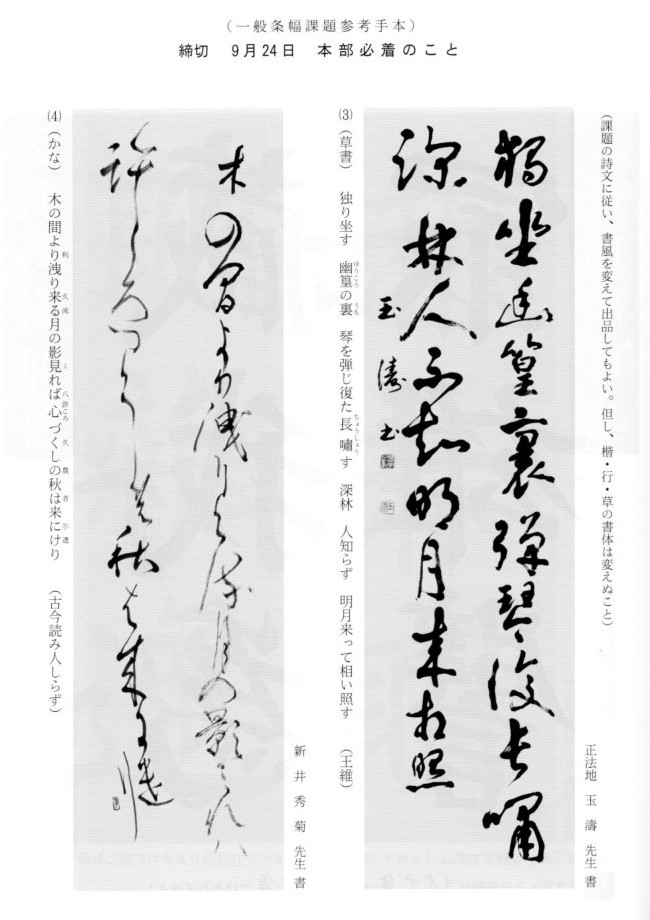 (一般条幅課題参考手本)
締切　9月24日　本部必着のこと
(課題の詩文に従い、書風を変えて出品してもよい。但し、楷・行・草の書体は変えぬこと)
正法地　玉　濤　先生　書
獨坐幽篁裏弾琴復長嘯
深林人不知明月来相照
玉濤書
(3)　(草書)　独り坐す　幽篁の裏　琴を弾じ復た長嘯す　深林　人知らず　明月来って相い照す　(王維)
ゆうこう　うち　ちょうしょう
新　井　秀　菊　先生　書
木の間より洩り久流月の影見れ八
許ころつくし農秋者来尓遣利
(4)　(かな)　木の間より洩り来る月の影見れば心づくしの秋は来にけり　(古今読み人しらず)